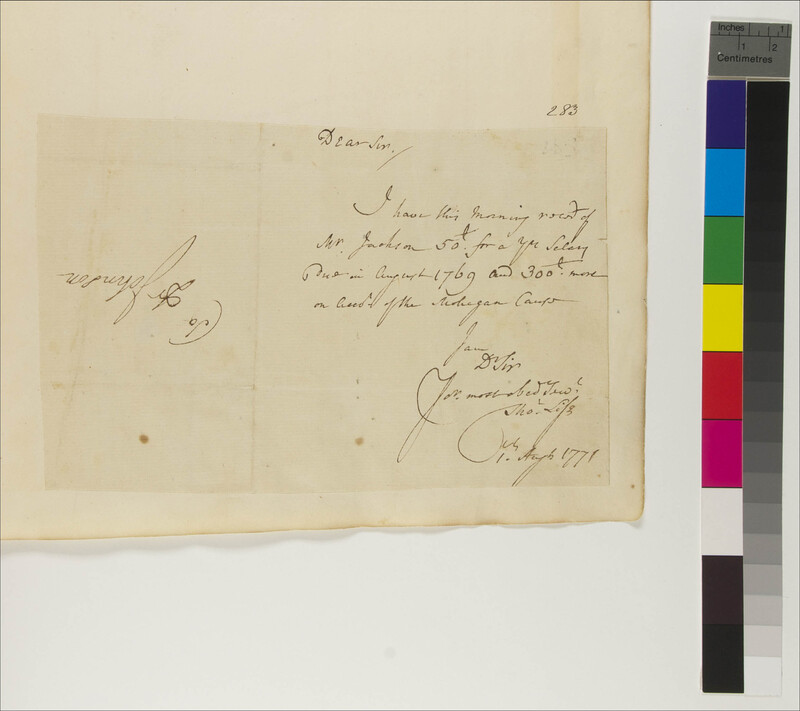 283
Dear Sir,
I have this Morning recd of
Mr. Jackson 50£ for a Yrs Salary
Due in August 1769 and 300£ more
on Acct. of the Mohegan Cause
I am
Dr Sir
Yor. most obedt Servt.
Thos. Life
1st. Augt 1771
To
Dr Johnson
Inches 1
1 2
Centimetres